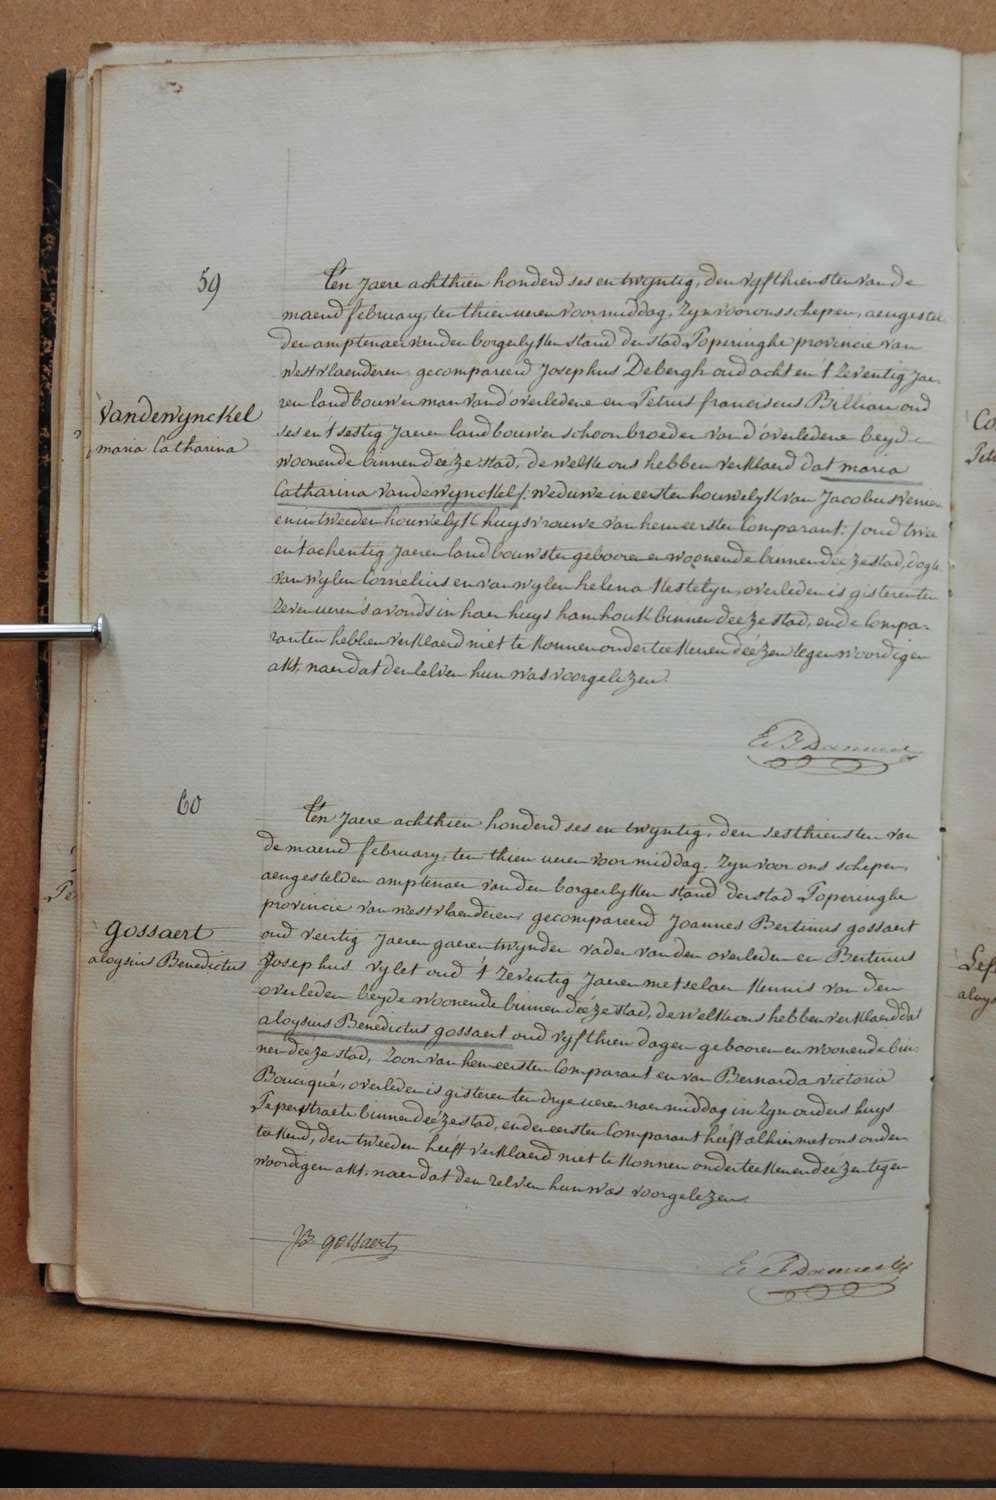 59
Ten Jaere achthien honderd ses en twyntig, den vyfthiensten van de
maend february, ten thien ueren voormiddag, Zyn voor ons schepen, aengestel-
den amptenaer van den borgerlyken stand der stad Poperinghe provincie van
westvlaenderen, gecompareerd Josephus Debergh oud acht en 't Zeventig Jae-
ren landbouwer man van d'overledene en Petrus franciscus Billiau oud
ses en 't sestig Jaeren landbouwer schoonbroeder van d'overledene beyde
woonende binnen deéze stad, de welke ons hebben verklaerd dat maria
Catharina vandewynckel /: weduwe in eersten houwelyk van Jacobus
en in tweeden houwelyk huysvrouwe van hem eersten Comparant :/ oud twee
en tachentig Jaeren landbouwster gebooren en woonende binnen deéze stad, dogter
van wylen Cornelius en van wylen helena Kestelyn, overleden is gisteren ten
Zeven ueren s'avonds in haer huys hamhoutk binnen deéze stad, en de Compa-
ranten hebben verklaerd niet te konnen onderteekenen deézen tegenwoordigen
akt, naer dat den selven hun was voorgelezen.
vandewynckel
maria Catharina
60
Ten Jaere achthien honderd ses en twyntig, den sesthiensten van
de maend february, ten thien ueren voormiddag, Zyn voor ons schepen,
aengestelden amptenaer van den borgerlyken stand der stad Poperinghe
provincie van westvlaenderen, gecompareerd Joannes Bertinus gossaert
oud veertig Jaeren gaerentwynder vader van den overleden en Bertinus
Josephus vylet oud 't Zeventig Jaeren metselaer kennis van den
overleden beyde woonende binnen deéze stad, de welke ons hebben verklaerd dat
aloysius Benedictus gossaert oud vyfthien dagen gebooren en woonende bin-
nen deéze stad, Zoon van hem eersten Comparant en van Bernarda victoria
Boucqué, overleden is gisteren ten drye ueren naermiddag in Zyn ouders huys
Peperstraete binnen deéze stad, en den eersten Comparant heéft alhier met ons onder-
teekend, den tweeden heéft verklaerd niet te konnen onderteekenen deézen tegen-
woordigen akt, naer dat den zelven hun was voorgelezen.
gossaert
aloysius Benedictus
JB gossaert